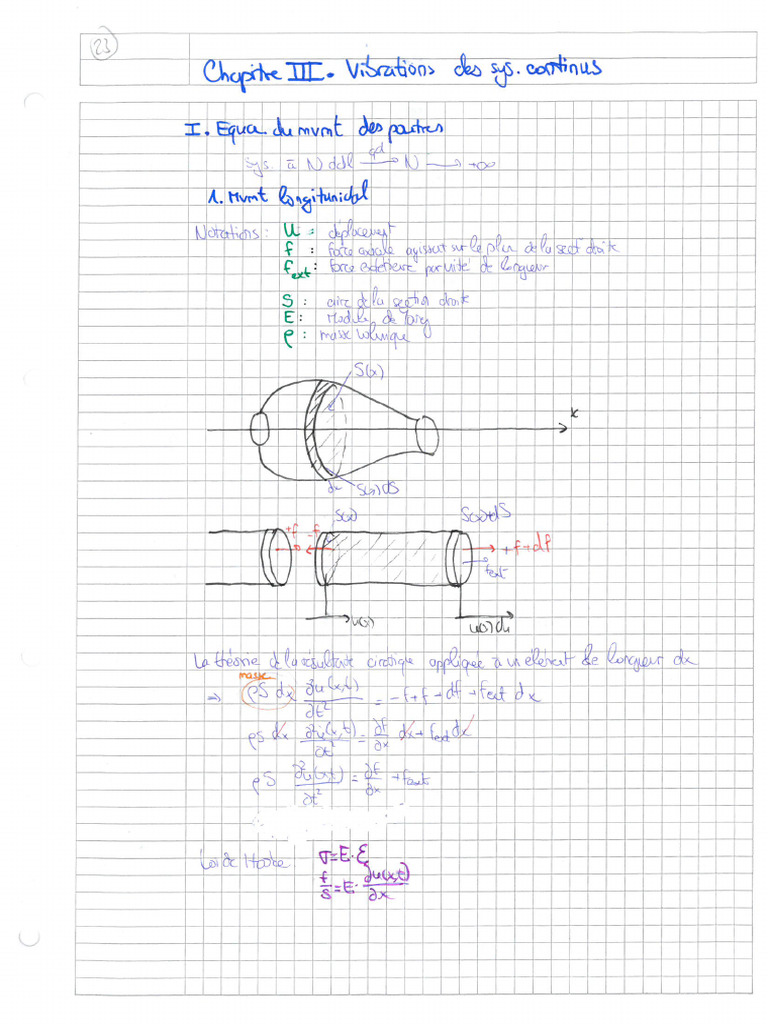 23
Chapitre III. Vibrations des sys. continus
I. Equa. du mvmt des poutres
sys. à N ddl qd N → +∞
1. Mvmt longitunidal
Notations: U = déplacement
f : Force axiale agissant sur le plan de la sect droite
f_ext : Force extérieure par unité de longueur
S : aire de la section droite
E : Module de Young
ρ : masse volumique
S(x)
x
dx
S(x)+dS
S(x) S(x)+dS
+f -f +f+df
fext
u(x) u(x)+du
La théorème de la résultante appliquée à un élément de longueur dx
masse
⇒ ρS dx ∂²u(x,t)/∂t² = -f+f+df+fext dx
ρS dx ∂²u(x,t)/∂t² = ∂f/∂x dx + fext dx
ρS ∂²u(x,t)/∂t² = ∂f/∂x + fext
Loi de Hooke σ=E·ε
f/S = E·∂u(x,t)/∂x